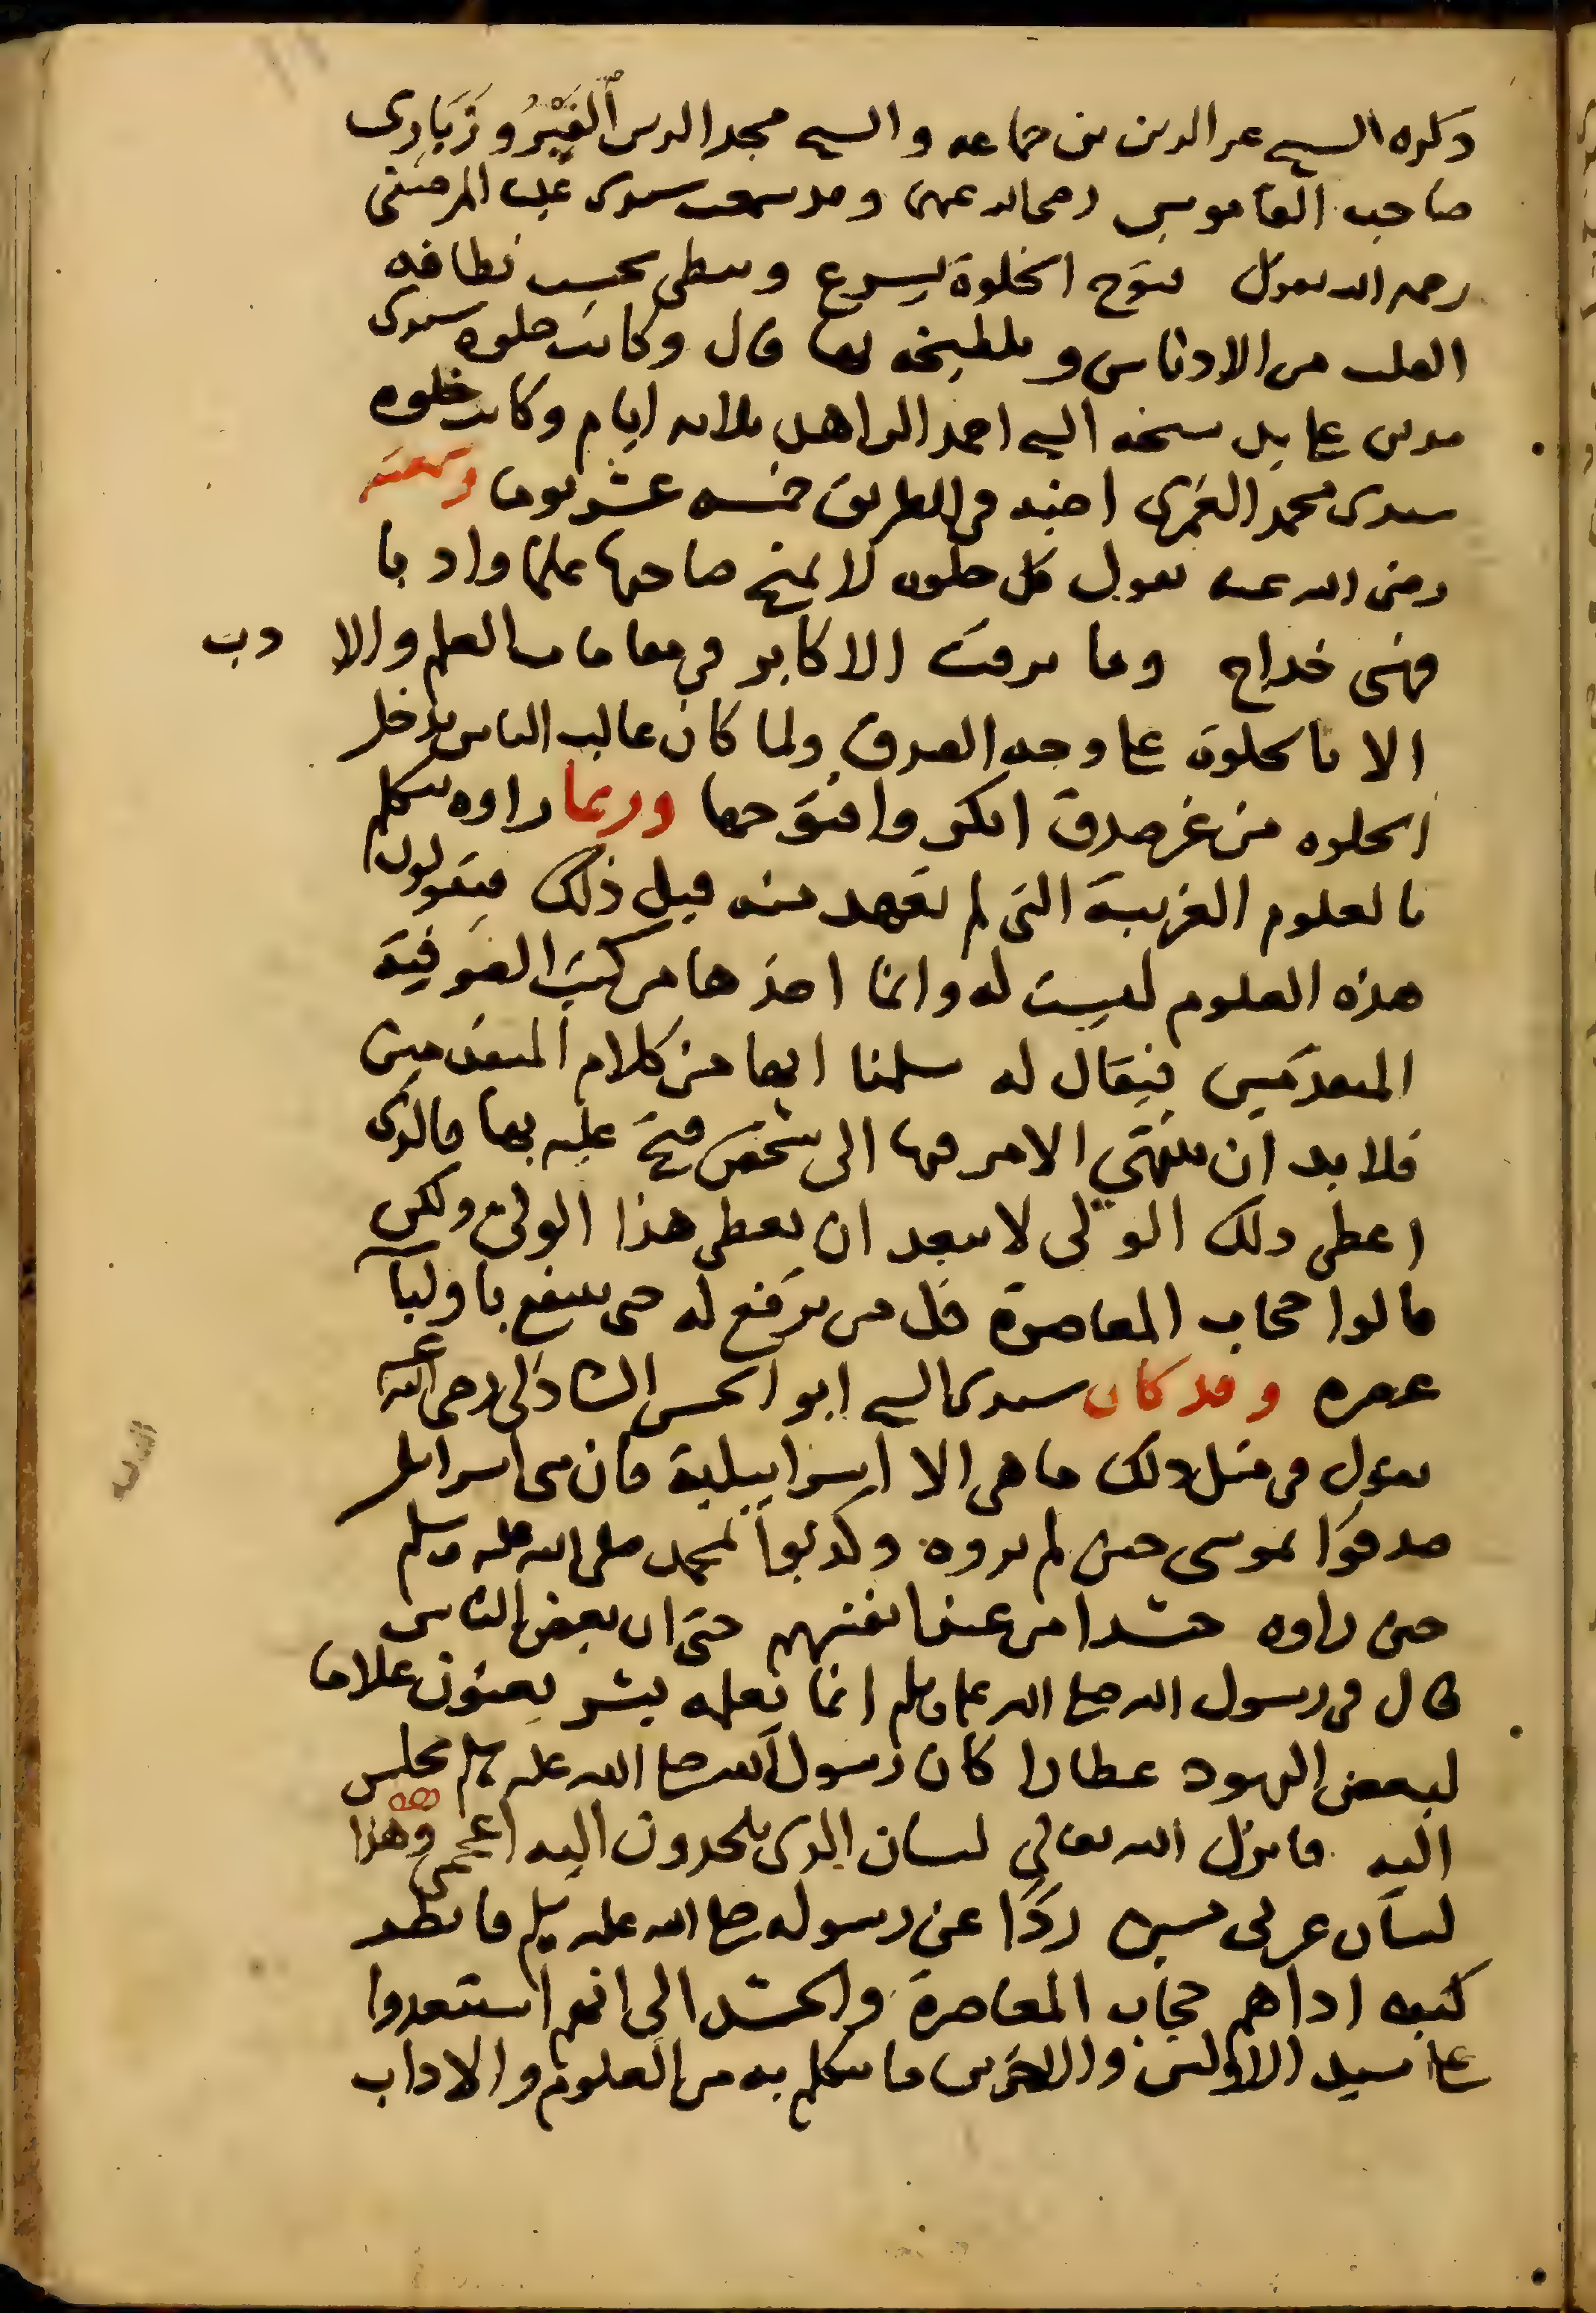 ذكره الشيخ عز الدين بن جماعه والشيخ مجد الدين الفَيْرُوزَبَادِى
صاحب القاموس رحمه الله عنهما وقد سمعت سيدى على المرصفى
رحمه الله يقول فتوح الخلوة يسرع ويبطى بحسب نظافه
القلب من الادناس وتلطيخه بها قال وكانت خلوه سيدى
مدين على يد شيخه الشيخ احمد الزاهد ثلاثه ايام وكانت خلوه
سيدى محمد الغمرى اخيه فى الطريق خمسه عشر يوما وسمعته
رضى الله عنه يقول كل خلوه لا تمنح صاحبها علما وادبا
فهى خداج وما ترقت الاكابر فى مقامات العلم والا دب
الا بالخلوة على وجه الصدق ولما كان غالب الناس يدخل
الخلوه من غير صدق انكروا فتوحها وربما راوه يتكلم
بالعلوم الغريبة التى لم تعهد منه قبل ذلك فيقولون
هذه العلوم ليست له وانما اخذها من كتب الصوفية
المتقدمين فيقال له سلمنا انها من كلام المتقدمين
فلا بد ان ينتهي الامر فيها الى شخص فتح عليه بها فالذى
اعطى ذلك الولى لا يبعد ان يعطى هذا الولى ولكن
قالوا حجاب المعاصرة قل من يرفع له حتى ينتفع باوليآ
عصره وقد كان سيدى الشيخ ابو الحسن الشاذلى رضى الله عنه
يقول فى مثل ذلك ما هى الا اسراييلية فان بنى اسرايل
صدقوا بموسى حين لم يروه وكذبوا بمحمد صلى الله عليه وسلم
حين راوه حسدا من عند انفسهم حتى ان بعض الناس
قال فى رسول الله صلى الله عليه وسلم انما يعلمه بشر يعنون غلاما
لبعض اليهود عطارا كان رسول الله صلى الله عليه وسلم يجلس
اليه فانزل الله تعالى لسان الذى يلحدون اليه اعجمى وهذا
لسان عربى مبين ردًا عن رسوله صلى الله عليه وسلم فانظر
كيف اداهم حجاب المعاصرة والحسد الى انهم استبعدوا
على سيد الاولين والاخرين ما يتكلم به من العلوم والاداب